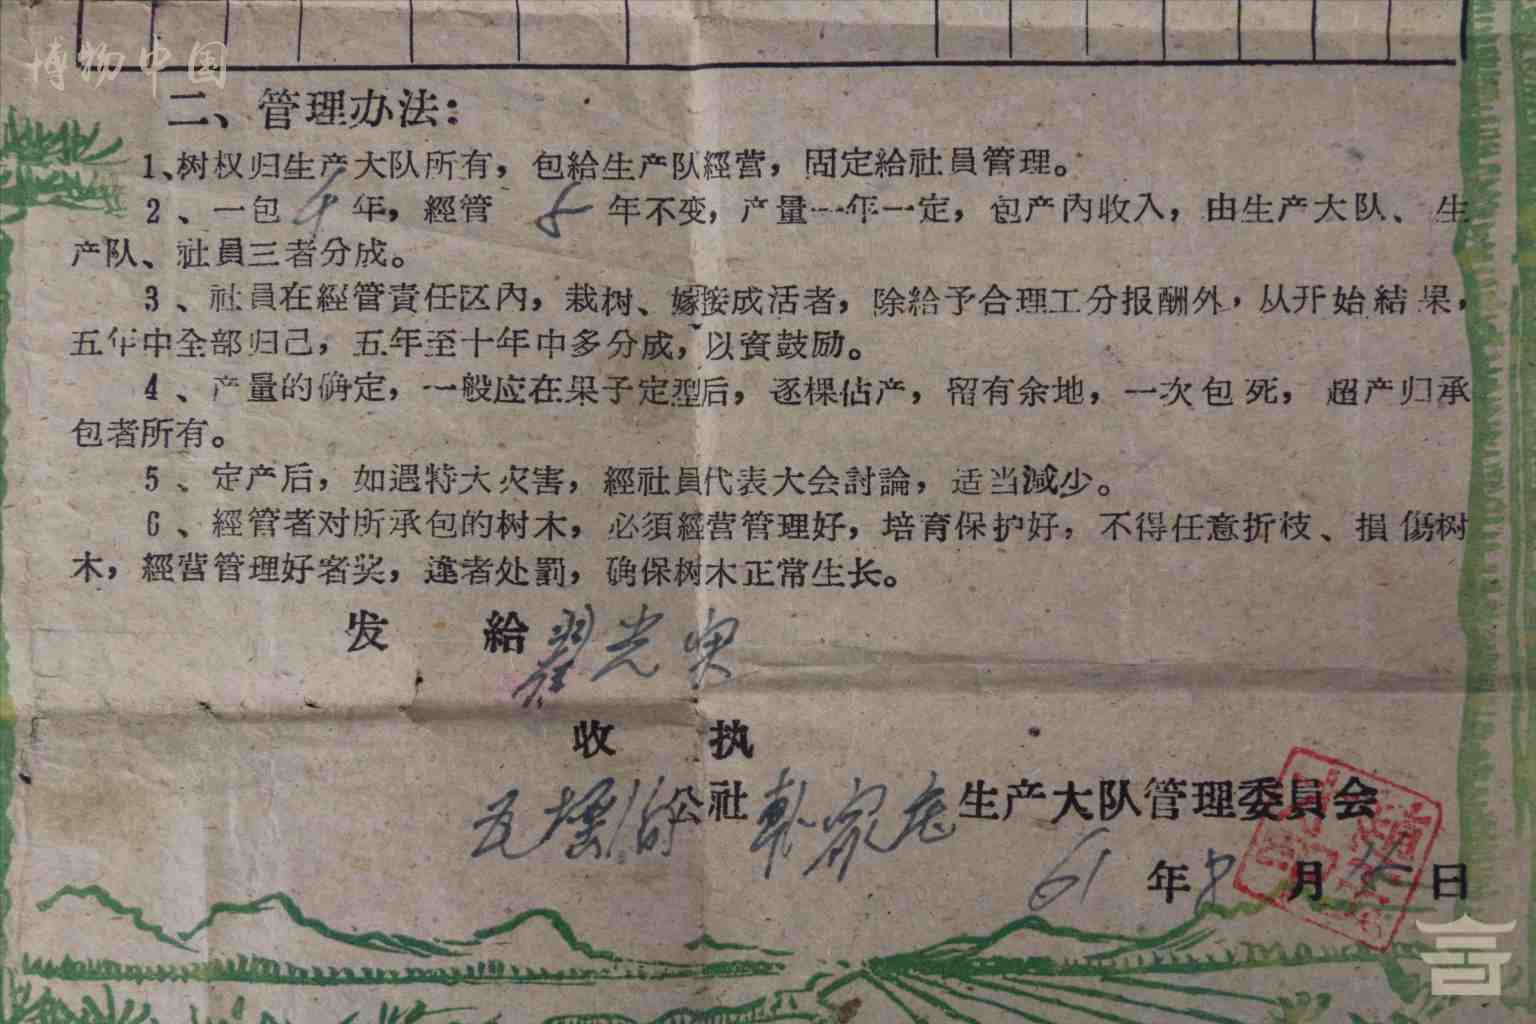 博物中国
二、管理办法：
1、树权归生产大队所有，包給生产队經营，固定給社員管理。
2、一包 年，經管 年不变，产量一年一定，包产內收入，由生产大队、生
产队、社員三者分成。
3、社員在經管責任区內，栽树、嫁接成活者，除給予合理工分报酬外，从开始結果，
五年中全部归己，五年至十年中多分成，以資鼓励。
4、产量的确定，一般应在果子定型后，逐棵估产，留有余地，一次包死，超产归承
包者所有。
5、定产后，如遇特大灾害，經社員代表大会討論，适当減少。
6、經管者对所承包的树木，必須經营管理好，培育保护好，不得任意折枝、損傷树
木，經营管理好者奖，違者处罰，确保树木正常生长。
发 給 翟光
收 执
瓦 公社 家庄 生产大队管理委員会
61 年 月 日